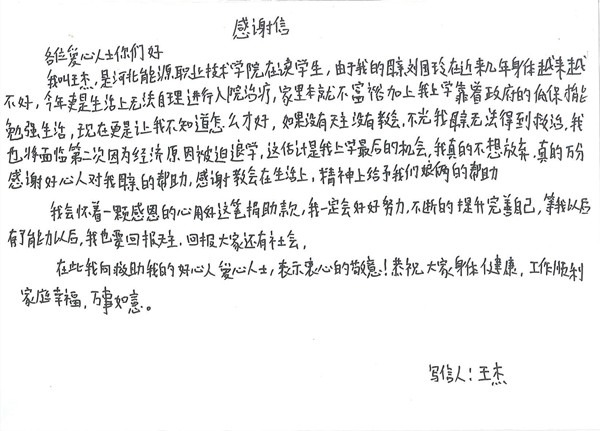 感谢信
各位爱心人士你们好
我叫王杰，是河北能源职业技术学院在读学生，由于我的母亲刘国玲在近来几年身体越来越
不好，今年更是生活上无法自理进行入院治疗，家里本就不富裕加上我上学靠着政府的低保才能
勉强生活，现在更是让我不知道怎么才好，如果没有天主没有教会，不光我母亲无法得到救治，我
也将面临第二次因为经济原因被迫退学，这估计是我上学最后的机会，我真的不想放弃，真的万分
感谢好心人对我母亲的帮助，感谢教会在生活上，精神上给予我们娘俩的帮助
我会怀着一颗感恩的心用好这笔捐助款，我一定会好好努力，不断的提升完善自己，等我以后
有了能力以后，我也要回报天主，回报大家还有社会，
在此我向救助我的好心人爱心人士，表示衷心的敬意！恭祝大家身体健康，工作顺利
家庭幸福，万事如意。
写信人：王杰